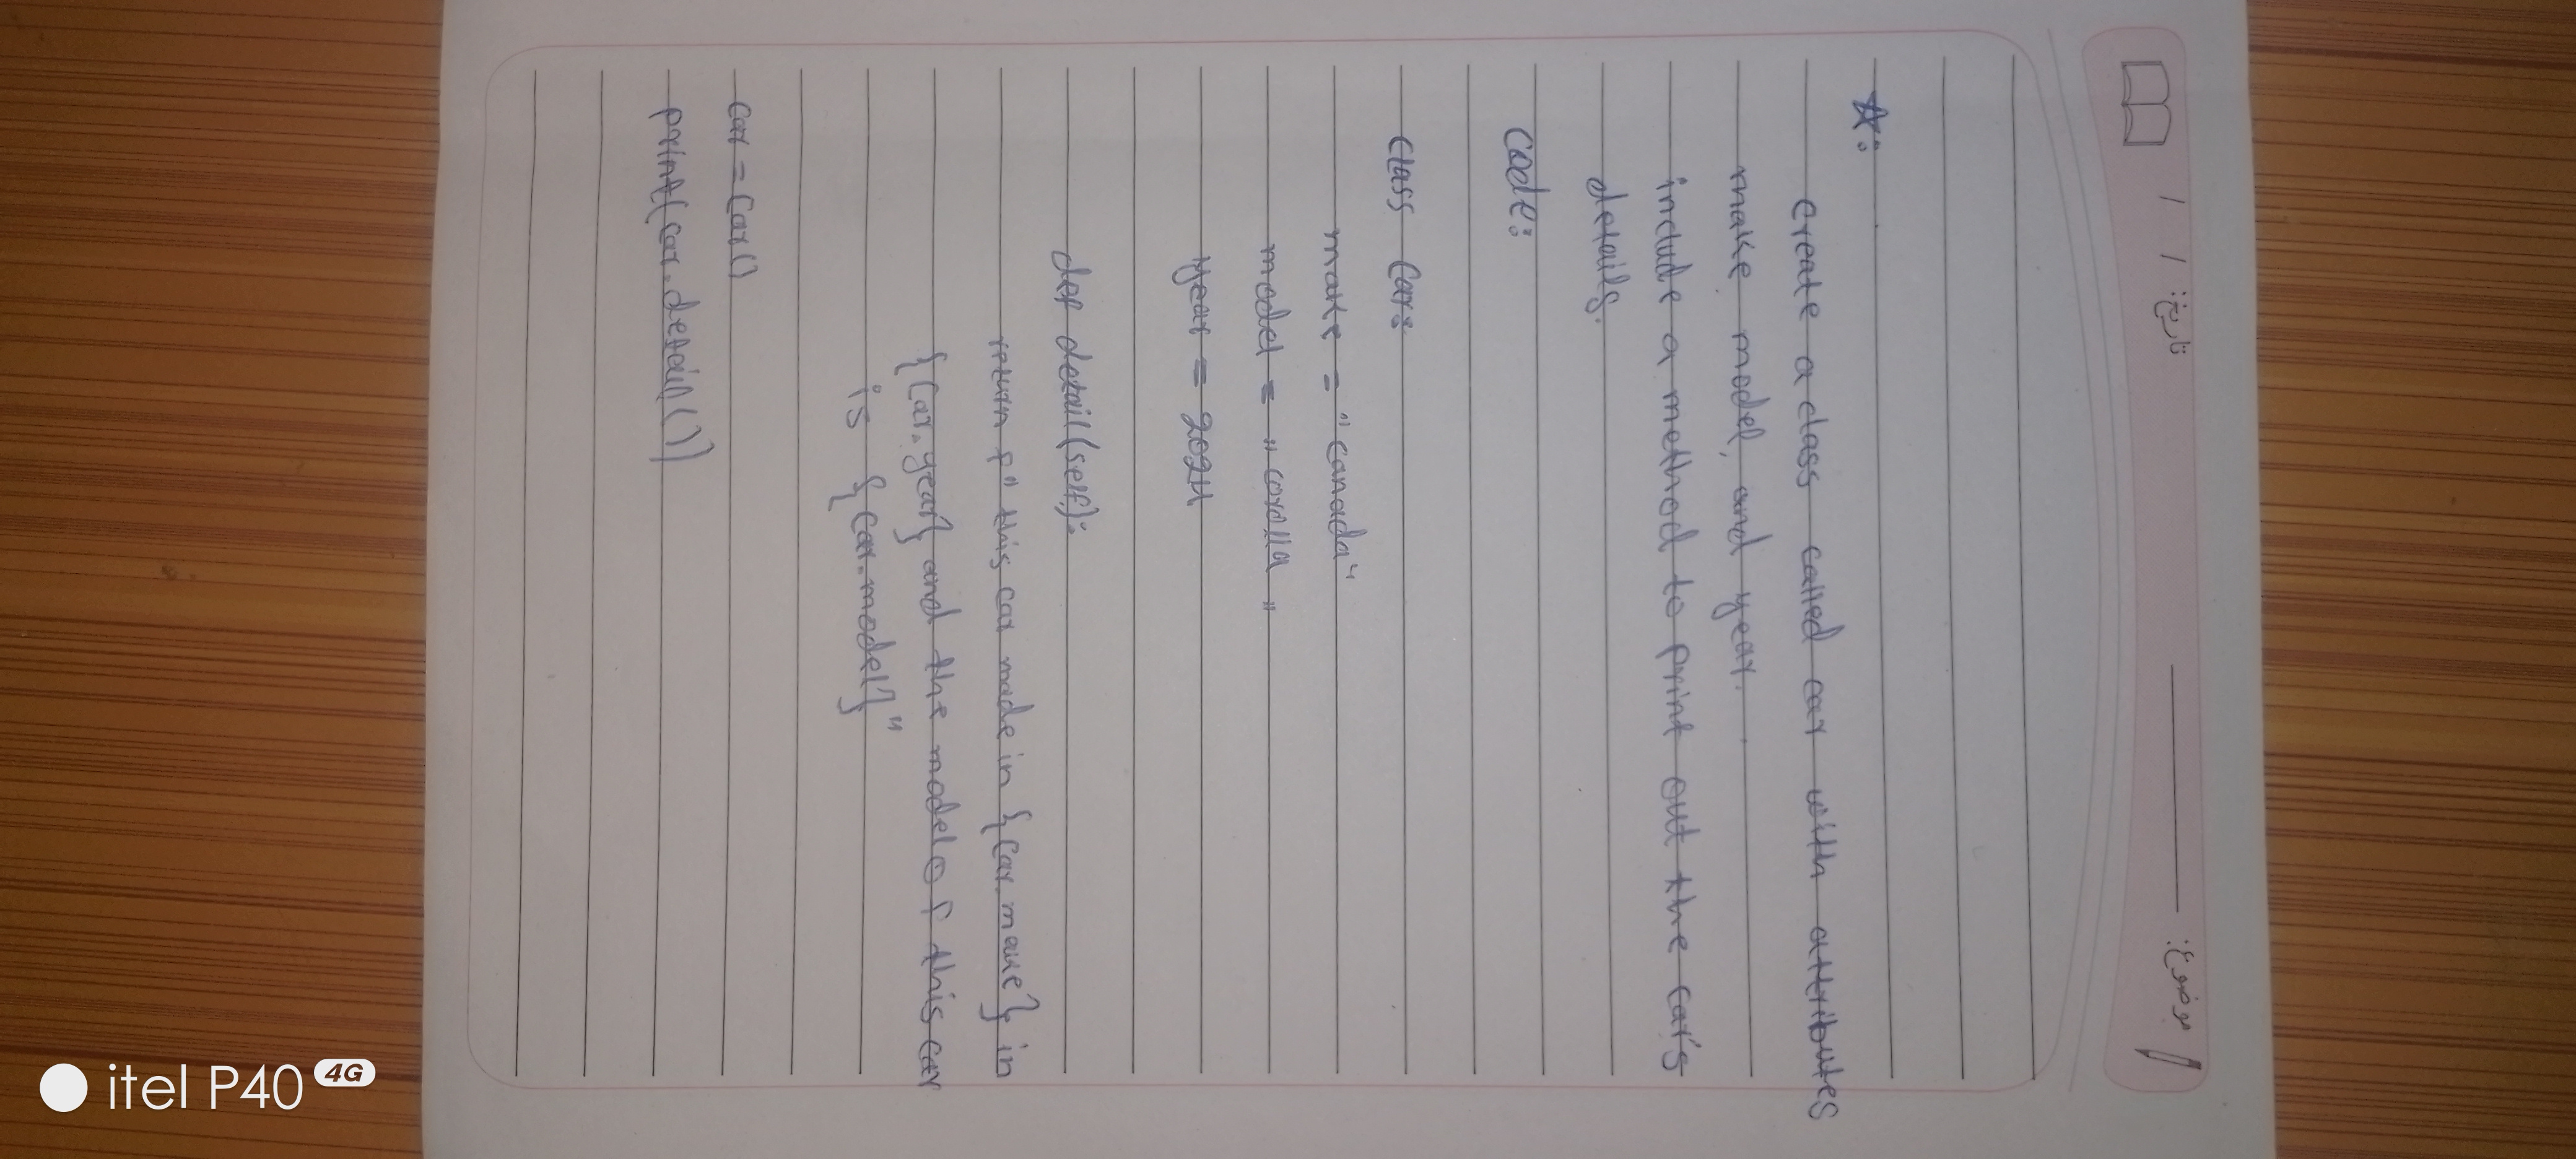 تاریخ: / /
موضوع:
*:
create a class called car with attributes
make model, and year.
include a method to print out the car's
details.
code:
class Car:
make = "canada"
model = "corolla"
year = 2024
def detail(self):
return f" this car made in {car.make} in
{car.year} and the model of this car
is {car.model}"
car = Car()
print(car.detail())
itel P40 4G